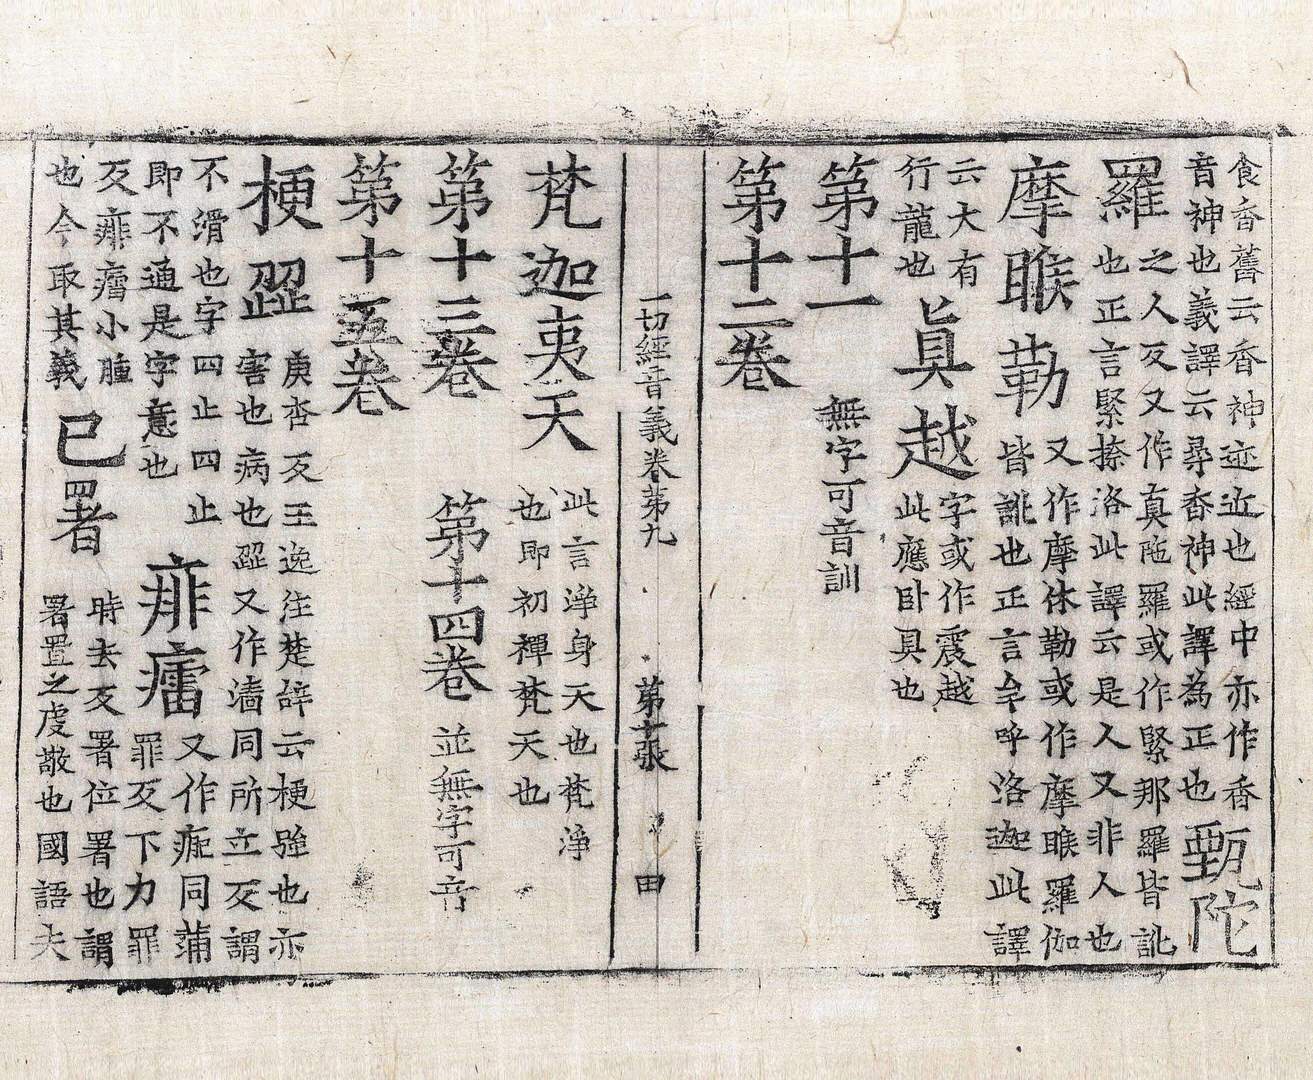 食香舊云香神迹近也經中亦作香
音神也義譯云尋香神此譯為正也甄陀
羅之人反又作真陁羅或作緊那羅皆訛
也正言緊捺洛此譯云是人又非人也
摩睺勒又作摩休勒或作摩睺羅伽
皆訛也正言牟呼洛迦此譯
云大有
行龍也
真越字或作震越
此應卧具也
第十一
無字可音訓
第十二卷
一切經音義卷第九 第十張 田
梵迦夷天此言淨身天也梵淨
也即初禪梵天也
第十三卷 第十四卷並無字可音
第十五卷
梗澀庚杏反王逸注楚辝云梗強也亦
害也病也澀又作濇同所立反謂
不滑也字四止四止
即不通是字意也
痱㿔又作疿同蒲
罪反下力罪
反痱㿔小腫
也今取其義
已署時去反署位署也謂
署置之虔敬也國語夫